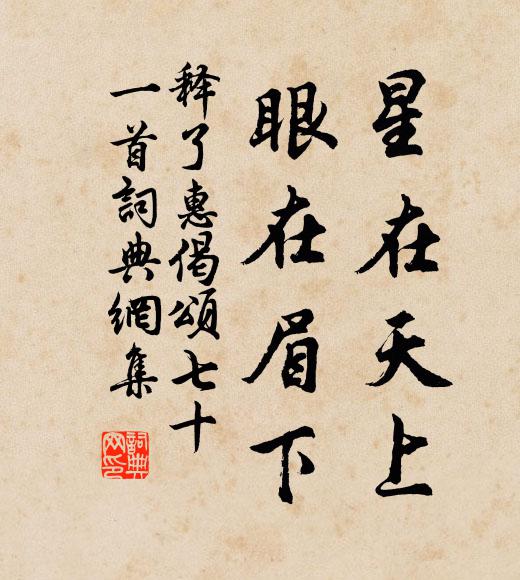 星在天上
眼在眉下
释了惠偈頌七十
一首詞典網集
詞典
网印